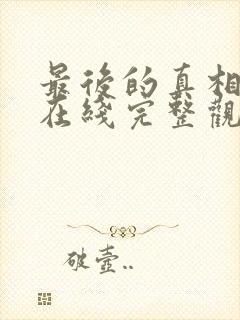 最後的真相
在綫完整觀
破壺..